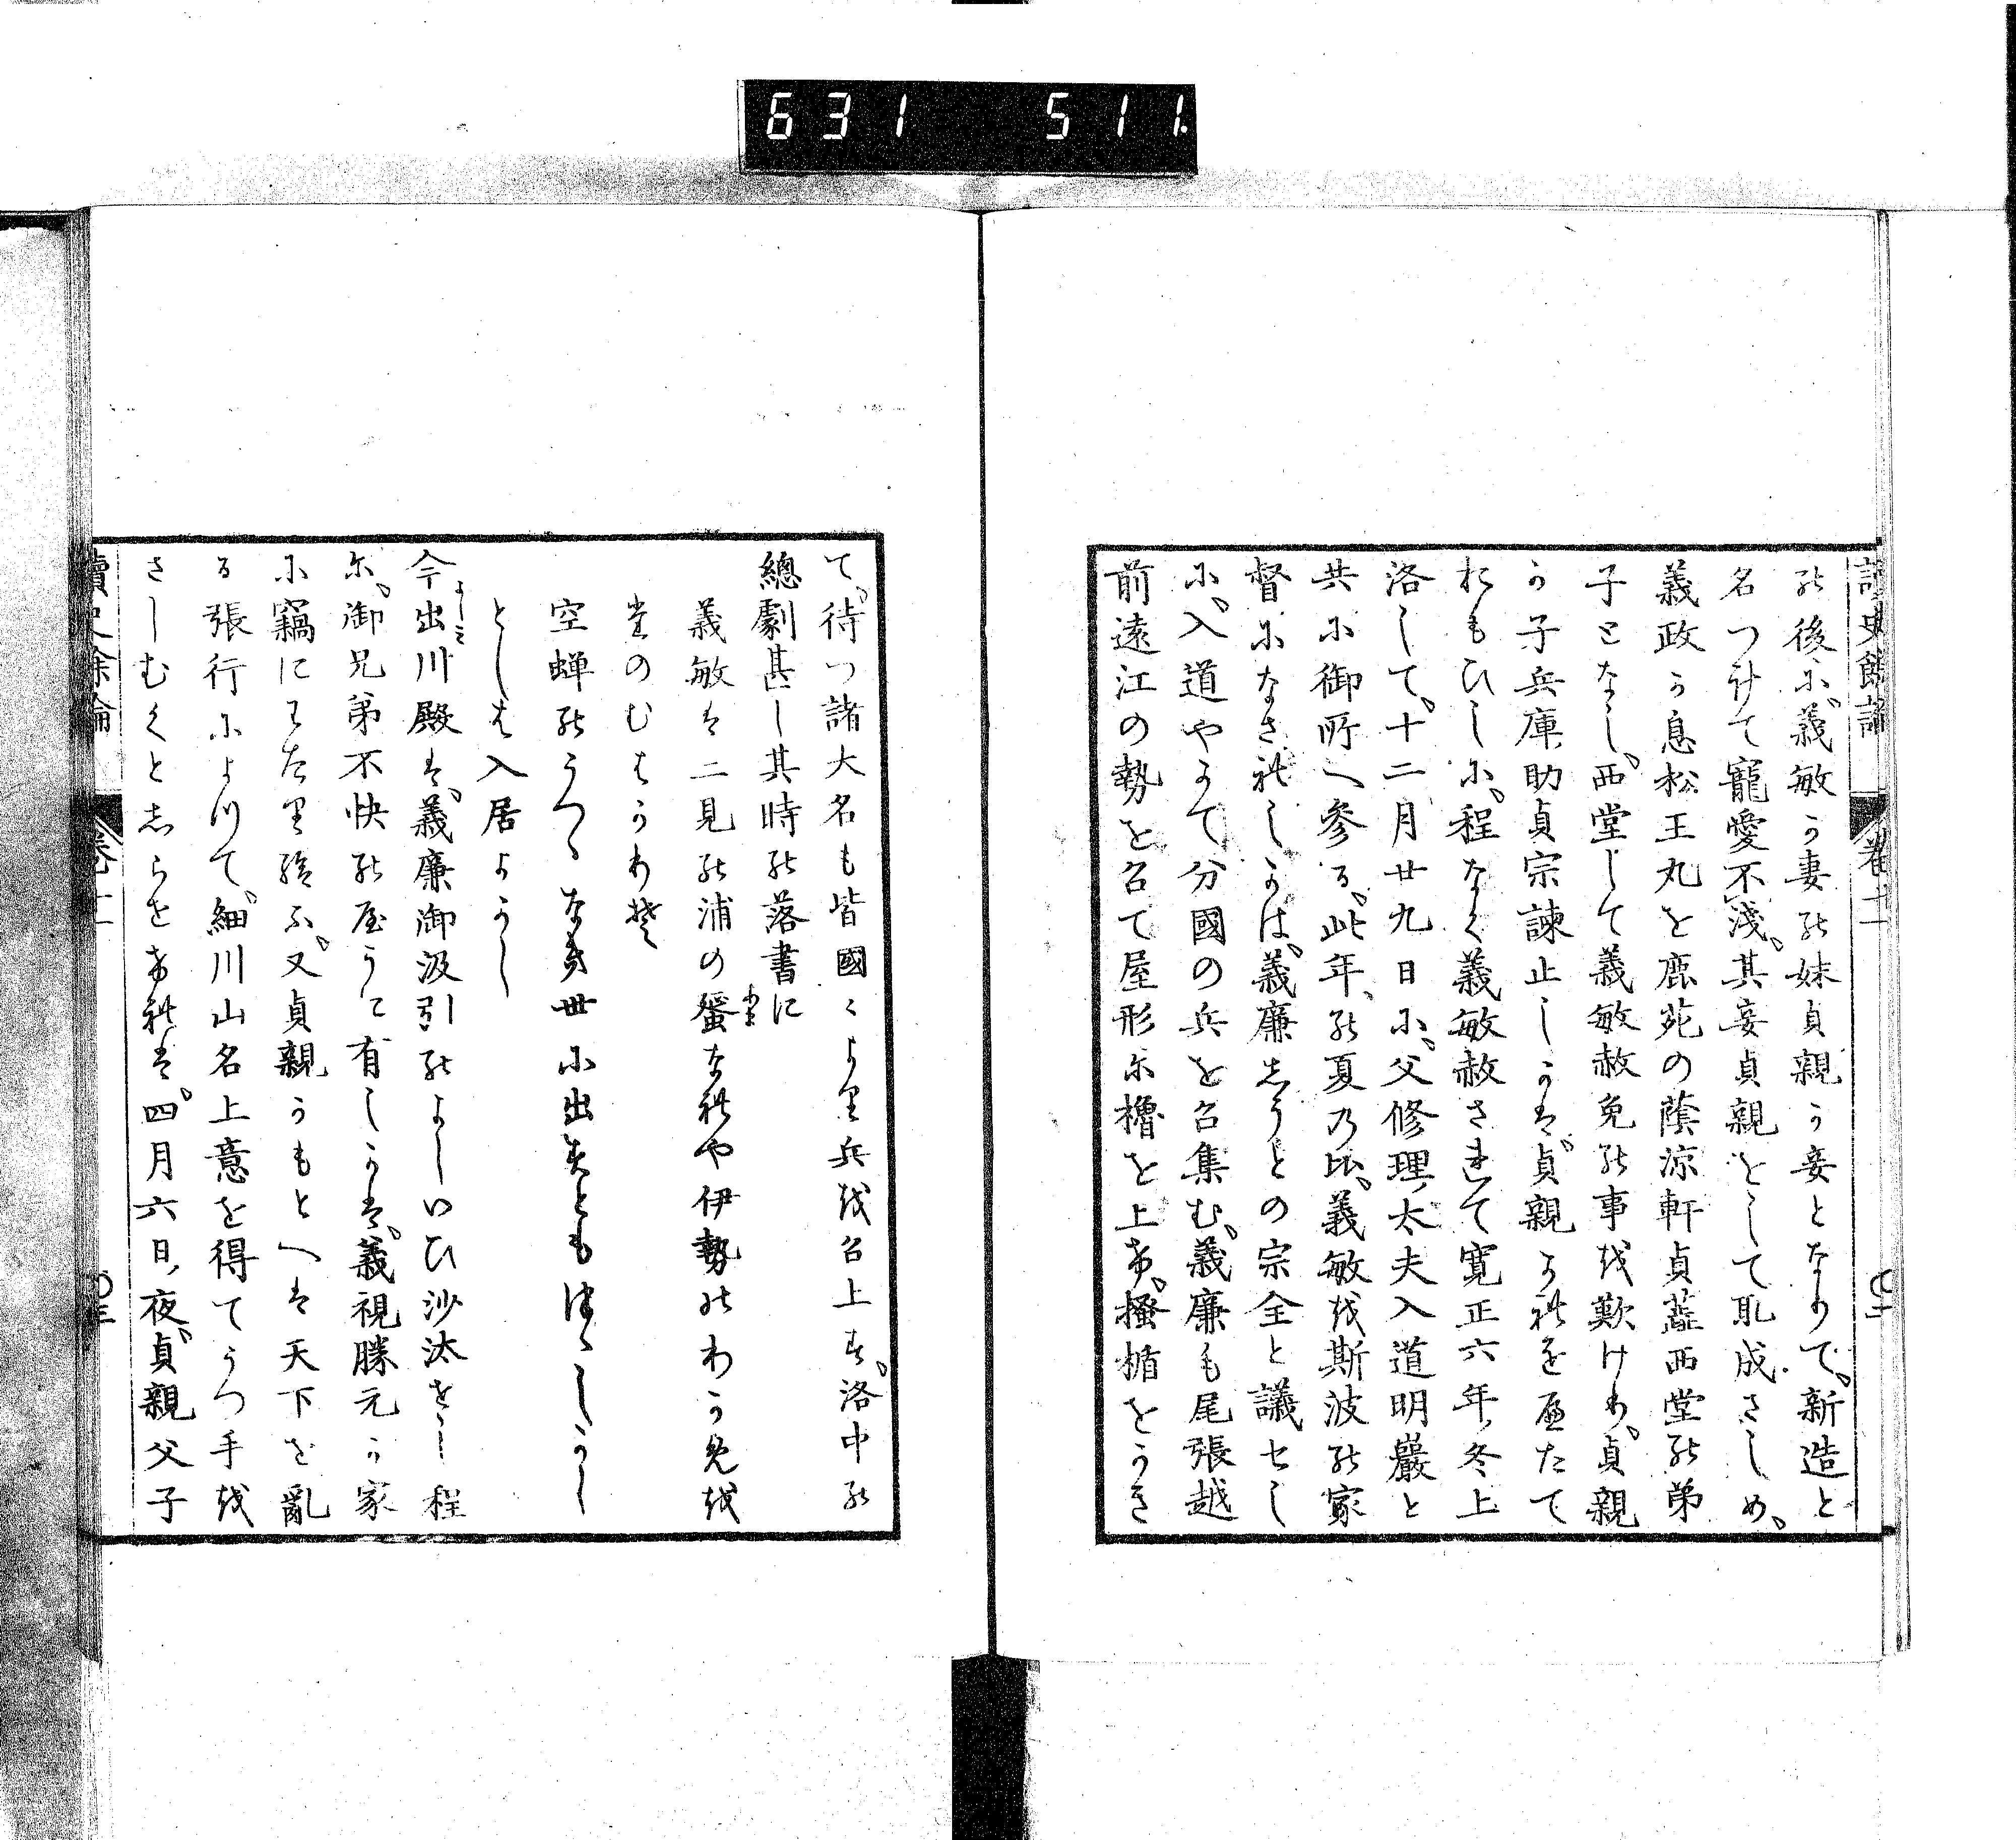 631 511.
讀史餘論 卷十一
の後に、義敏か妻の妹貞親か妾となりて、新造と
名つけて寵愛不淺、其妾貞親をして取成さしめ、
義政か息松王丸を鹿苑の蔭凉軒貞蘂西堂の弟
子となし、西堂して義敏赦免の事を歎けり、貞親
か子兵庫助貞宗諫止しかは、貞親かれをへたて
おもひしに、程なく義敏赦されて寛正六年、冬上
洛して、十二月廿九日に、父修理太夫入道明巖と
共に御所へ參る、此年、の夏乃比、義敏を斯波の家
督になされしかは、義廉しうとの宗全と議せし
に、入道やかて分國の兵を召集む、義廉も尾張越
前遠江の勢を召て屋形に櫓を上け、搔楯をかき
て、待つ諸大名も皆國〻より兵を召上す、洛中の
總劇甚し其時の落書に
義敏は二見の浦の蜑なれや伊勢のわかめを
たのむはかりそ
空蝉のうつゝなき世に出るともはゝしかし
としは入居よかし
今出川殿は、義廉御汲引のよしいひ沙汰せし程
よしミ
に、御兄弟不快のやうに有しかは、義視勝元か家
に竊にわたり給ふ、又貞親かもとへは天下を亂
る張行によつて、細川山名上意を得てうつ手を
さしむくとしらせけれは、四月六日、夜、貞親父子
讀史餘論 卷十一